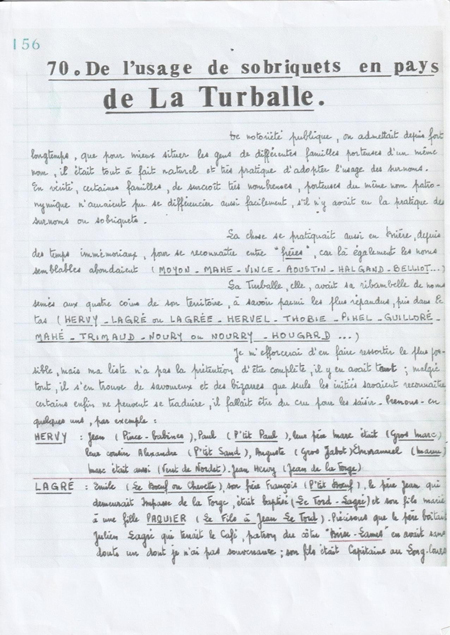 156
70. De l'usage de sobriquets en pays
de La Turballe.
De notoriété publique, on admettait depuis fort
longtemps, que pour mieux situer les gens de différentes familles porteuses d'un même
nom, il était tout à fait naturel et très pratique d'adopter l'usage des surnoms.
En vérité, certaines familles, de surcroît très nombreuses, porteuses du même nom patro-
nymique n'auraient pu se différencier aussi facilement, s'il n'y avait eu la pratique des
surnoms ou sobriquets.
La chose se pratiquait aussi en Brière, depuis
des temps immémoriaux, pour se reconnaître entre "frères", car là également les noms
semblables abondaient (MOYON - MAHE - VINCE - AOUSTIN - HALGAND - BELLIOT...)
La Turballe, elle, avait sa ribambelle de noms
semés aux quatre coins de son territoire, à savoir parmi les plus répandus, pris dans le
tas (HERVY - LAGRÉ ou LAGRÉE - HERVEL - THOBIE - PIHEL - GUILLORÉ -
MAHÉ - TRIMAUD - NOURY ou NOURRY - HOUGARD ...)
Je m'efforcerai d'en faire ressortir le plus pos-
sible, mais ma liste n'a pas la prétention d'être complète, il y en avait tant ; malgré
tout, il s'en trouve de savoureux et des bizarres que seuls les initiés savaient reconnaître
certains enfin ne peuvent se traduire, il fallait être du cru pour les saisir - Prenons-en
quelques uns, par exemple :
HERVY : Jean (Pince-), Paul (P'tit Paul), leur père Marc était (Gros Marc)
leur cousin Alexandre (P'tit Sand), Auguste (Gros Jabot)
Marc était aussi (Vent de Nordet). Jean Hervy (Jean de la Forge)
LAGRÉ : Emile (Le Bœuf ou), son père François (P'tit Bœuf), le père Jean qui
demeurait Impasse de la Forge, était baptisé (Le Tord-Lagré) et son fils marié
à une fille PAQUIER (Le Fils à Jean Le Tord). Précisons que le père boitait
Julien Lagré qui tenait le Café, patron du côtre "Brise-Lames" en avait sans
doute un dont je n'ai pas souvenance ; son fils était Capitaine au Long-Cours